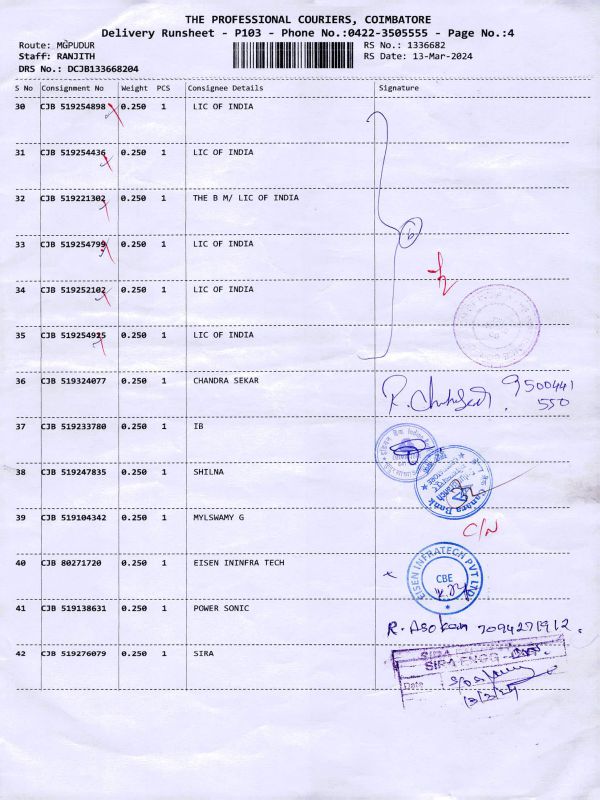 THE PROFESSIONAL COURIERS, COIMBATORE
Delivery Runsheet - P103 - Phone No.:0422-3505555 - Page No.:4
Route: MGPUDUR
RS No.: 1336682
Staff: RANJITH
RS Date: 13-Mar-2024
DRS No.: DCJB133668204
S No Consignment No Weight PCS Consignee Details Signature
30 CJB 519254898 0.250 1 LIC OF INDIA
31 CJB 519254436 0.250 1 LIC OF INDIA
32 CJB 519221302 0.250 1 THE B M/ LIC OF INDIA
33 CJB 519254799 0.250 1 LIC OF INDIA
6
34 CJB 519252102 0.250 1 LIC OF INDIA
35 CJB 519254925 0.250 1 LIC OF INDIA
36 CJB 519324077 0.250 1 CHANDRA SEKAR
9500441
550
37 CJB 519233780 0.250 1 IB
38 CJB 519247835 0.250 1 SHILNA
Canara Bank
39 CJB 519104342 0.250 1 MYLSWAMY G
C/N
40 CJB 80271720 0.250 1 EISEN ININFRA TECH
EISEN INFRATECH PVT LTD
CBE
41 CJB 519138631 0.250 1 POWER SONIC
R. Asokan 7094271912.
42 CJB 519276079 0.250 1 SIRA
SIRA ENGG
Date
13/3/24